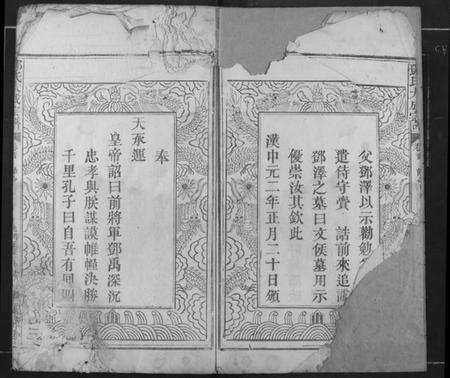 父鄧澤以示勸勉
遣侍守賫 誥前來追
鄧澤之墓曰文侯墓用示
優崇汝其欽此
漢中元二年正月二十日頒
奉
天承運
皇帝詔曰前將軍鄧禹深沉
忠孝與朕謀謨帷幄決勝
千里孔子曰自吾有回